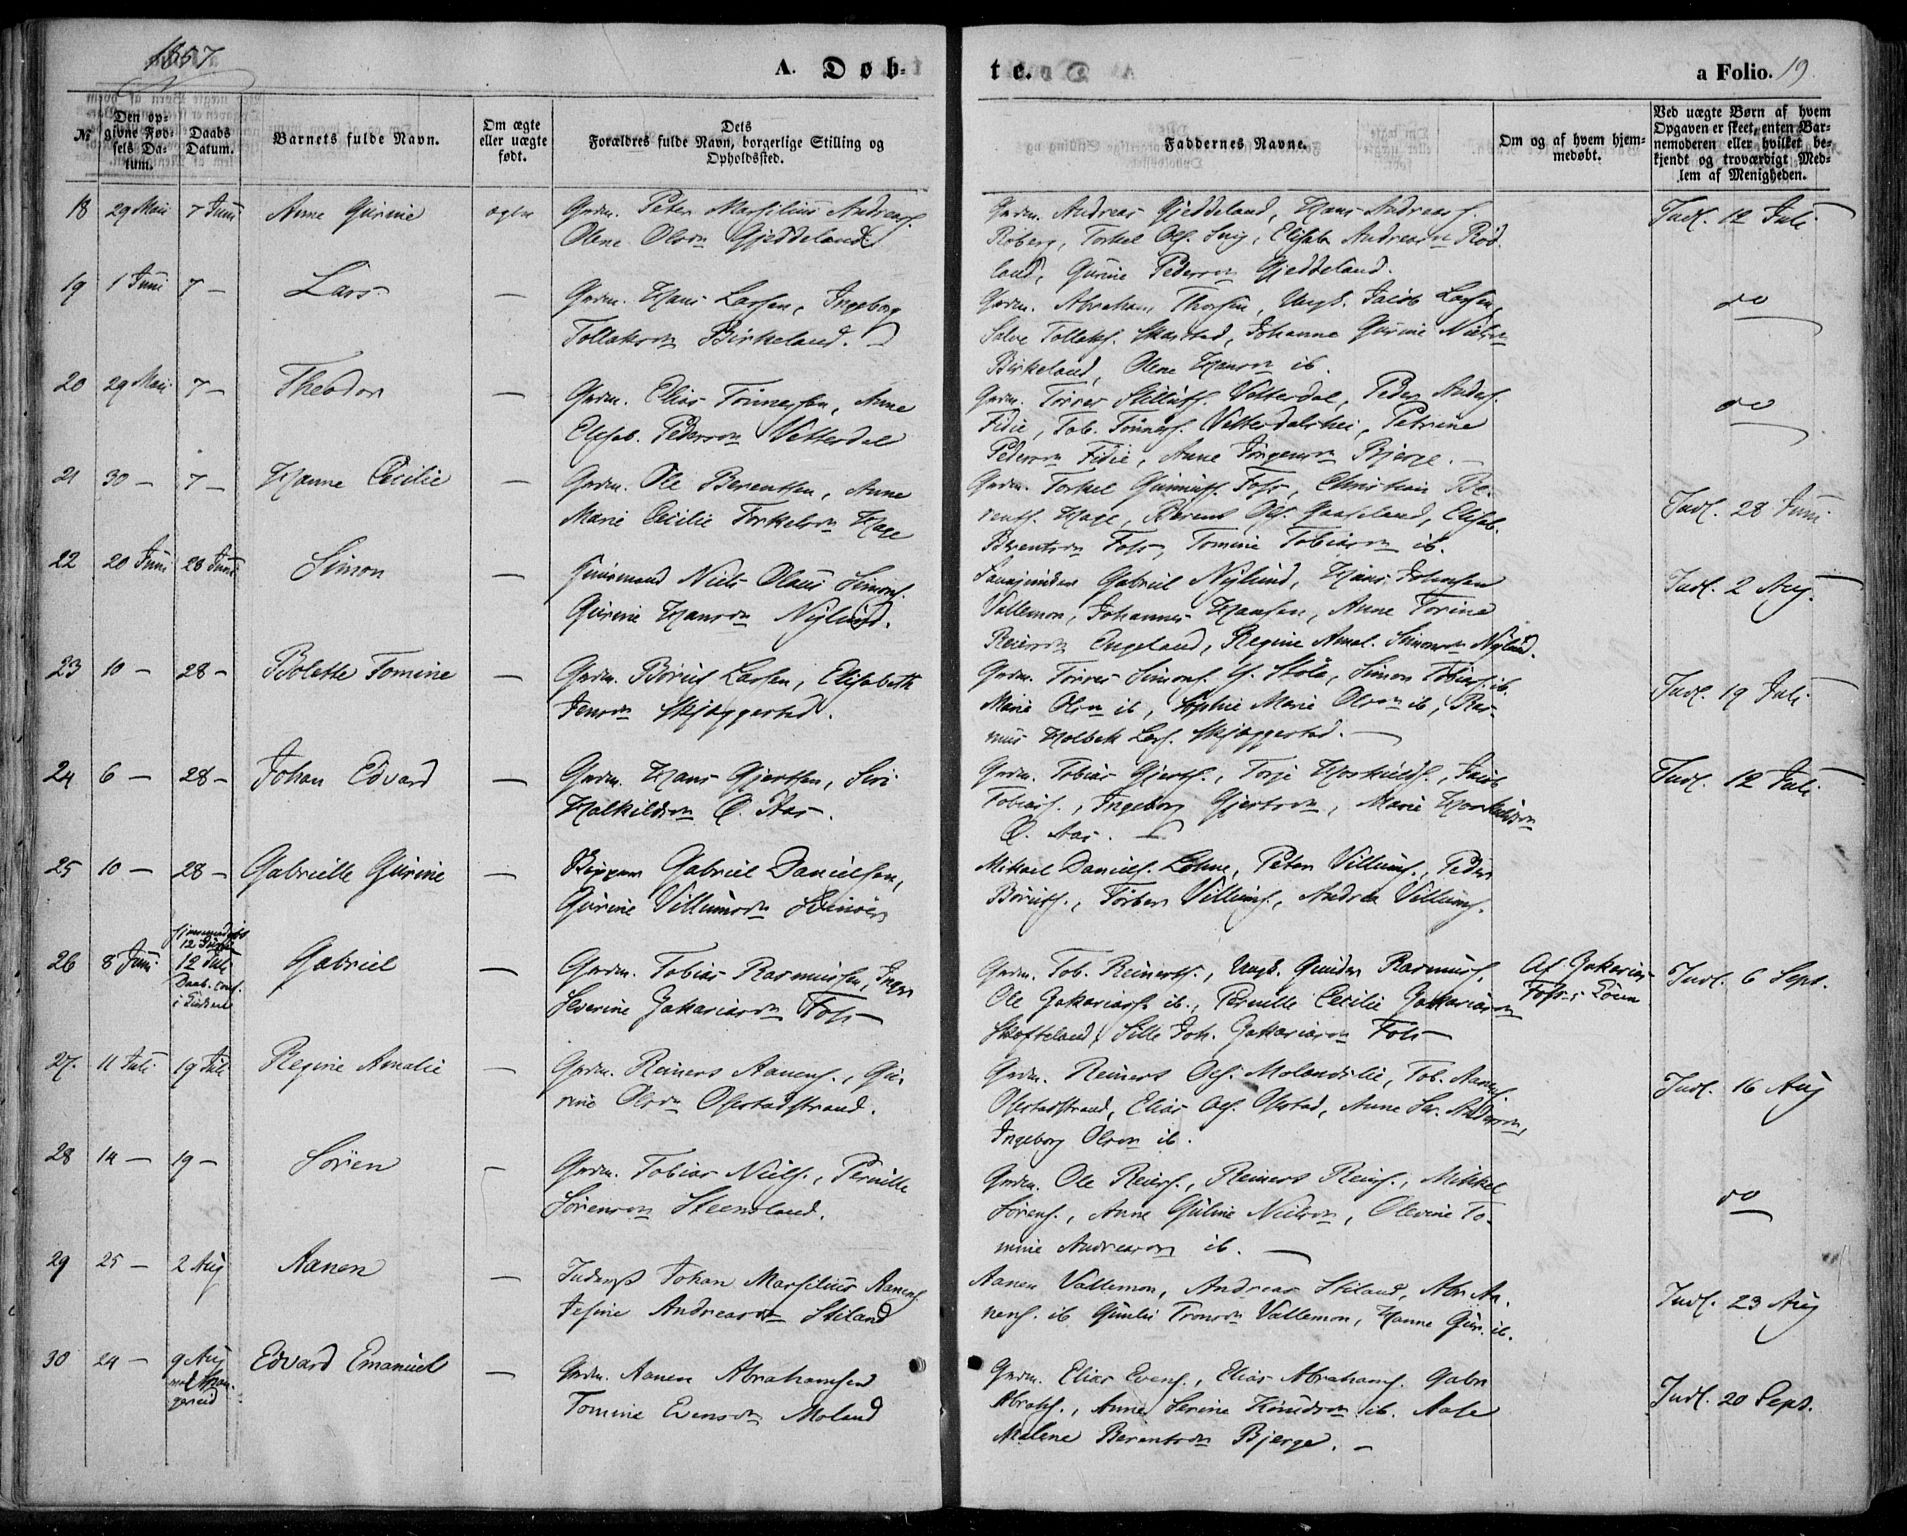 1857
A. Døb-
te.
a Folio. 19.
№
Den op-
givne Fød-
sels Da-
tum.
Daabs
Datum.
Barnets fulde Navn.
Om ægte
eller uægte
født.
Dets
Forældres fulde Navn, borgerlige Stilling og
Opholdssted.
Faddernes Navne.
Om og af hvem hjem-
medøbt.
Ved uægte Børn af hvem
Opgaven er skeet, enten Bar-
nemoderen eller hvilket be-
kjendt og troværdigt Med-
lem af Menigheden.
18 29 Mai 7 Juni Anne Gurine ægte Grdm. Peter Marsilius Andreass.
Olene Olsdn Gjeddeland
Grdm. Andreas Gjeddeland, Hans Andreass.
Roberg, Torkel Ols. , Elisab. Andreasdn Rød-
land, Gurine Pedersdn Gjeddeland.
Indl. 12 Juli
19 1 Juni 7 — Lars — Grdm. Hans Larsen, Ingeborg
Tollaksdn Birkeland.
Grdm. Abraham Thorsen, Ungk. Jacob Larsen,
Salve Tollaks. , Johanne Gurine Nielsdn
Birkeland, Olene Hansdn ib.
do
20 29 Mai 7 — Theodor — Grdm. Elias Tönnesen, Anne
Elisab. Pedersdn Vetterdal
Grdm. Törres Vetterdal, Peder Anders.
Fidie, Tob. Tönnes. Vetterdalshei, Petrine
Pedersdn Fidie, Anne Jörgensdn Bjerge. —
do
21 30 — 7 — Hanne Cecilie — Grdm. Ole Berentsen, Anne
Marie Cecilie Torkelsdn Hage
Grdm. Torkel Foss, Christian Be-
rents. Hage, Berent Ols. Gaaseland, Elisab.
Berentsdn Foss, Tomine Tobiasdn ib.
Indl. 28 Juni
22 20 Juni 28 Juni Simon — Huusmand Niels Olaus Simons.
Gurine Hansdn Nylund.
Gabriel Nylund, Hans Johnsen
Vallemon, Johannes Hansen, Anne Torine
Reiersdn Engeland, Regine Amal. Simonsdn Nylund.
Indl. 2 Aug.
23 10 — 28 — Bolette Tomine — Grdm. Böruf Larsen, Elisabeth
Jensdn Skjæggestad.
Grdm. Törres Simons. Y. Stöle, Simon Tobias. ib.
Marie Olsdn ib, Sophie Marie Olsdn ib, Ras-
mus Holbek Lars. Skjæggestad. —
Indl. 19 Juli
24 6 — 28 — Johan Edvard — Grdm. Hans Gjertsen, Siri
Halkildsdn Ö. Aas.
Grdm. Tobias Gjerts., Terje Horkilds., Jacob
Tobias., Ingeborg Gjertsdn, Marie Horkildsdn
Ö. Aas. —
Indl. 12 Juli
25 10 — 28 — Gabrielle Gurine — Skipper Gabriel Danielsen,
Gurine Villumsdn
Mikael Daniels. Löhne, Peter Villums., Peder
Böruf., Torber Villums., Andrea Villums.
26 8 Juni hjemmedøbt
12 Juni
12 Juli
Daab. conf.
i Kirken
Gabriel — Grdm. Tobias Rasmusen, Inger
Severine Zakariasdn Foss
Grdm. Tob. Reinerts., Ungk. Gunder Rasmus.,
Ole Zakarias. ib., Pernille Cecilie Zakariasdn
Skofteland, Sille Joh. Zakariasdn Foss
Af Zakarias
Foss i
Indl. 6 Sept.
27. 11 Juli 19 Juli Regine Amalie — Grdm. Reinert Aanens., Gu-
rine Olsdn Ofstadstrand.
Grdm. Reinert Ols. Molandslie, Tob. Aanens.
Ofstadstrand, Elias Ols. Ofstad, Anne Andersdn,
Ingeborg Olsdn ib.
Indl. 16 Aug
28 14 — 19 — Sören — Grdm. Tobias Niels., Pernille
Sörensdn Steensland.
Grdm. Ole Reiers., Reinert Reiers., Mikkel
Sörens., Anne Guline Nielsdn, Olevine To-
mine Andreasdn ib. —
do
29 25 — 2 Aug Aanen — Inderst Johan Marsilius Aanens.
Jesine Andreasdn Stiland
Aanen Vallemon, Andreas Stiland, Abr. Aa-
nens. ib, Gunlei Tronsdn Vallemon, Hanne Gur. ib.
Indl. 23 Aug
30 24 — 9 Aug Edvard Emanuel — Grdm. Aanen Abrahamsen
Tomine Evensdn Moland
Grdm. Elias Evens., Elias Abrahams. Gabr.
Abrah., Anne Serine Knudsdn ib. Aase
Malene Berentsdn Bjerge. —
Indl. 20 Sept.